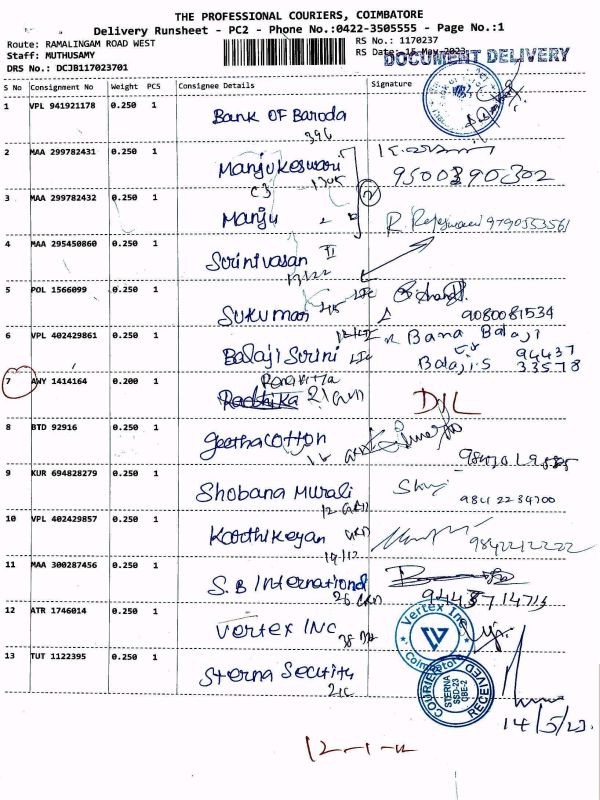 THE PROFESSIONAL COURIERS, COIMBATORE
Delivery Runsheet - PC2 - Phone No.:0422-3505555 - Page No.:1
Route: RAMALINGAM ROAD WEST RS No.: 1170237
Staff: MUTHUSAMY RS Date: 15 May 2023
DOCUMENT DELIVERY
DRS No.: DCJB117023701
S No Consignment No Weight PCS Consignee Details Signature
1 VPL 941921178 0.250 1 Bank OF Baroda
396
2 MAA 299782431 0.250 1 Manjukeswari
9500390302
3 MAA 299782432 0.250 1 Manju 2 9790553561
4 MAA 295450860 0.250 1 Srinivasan II
5 POL 1566099 0.250 1 Sukumar
9080081534
6 VPL 402429861 0.250 1 Balaji Srini Bana Balaji
Balaji.S 94437
33578
7 AWY 1414164 0.200 1 Radhika 21 D/L
8 BTD 92916 0.250 1 geetha cotton
9 KUR 694828279 0.250 1 Shobana Murali
12 GRD 9841 2234700
10 VPL 402429857 0.250 1 Karthikeyan GRD
14/12 9842212222
11 MAA 300287456 0.250 1 S.B International
26 GRD
12 ATR 1746014 0.250 1 Vertex INC
Vertex Inc.
Coimbatore
13 TUT 1122395 0.250 1 Sterna Security
21C
COURIER RECEIVED
STERNA
SSD-23
CBE-2
14/5/23
12-1-12